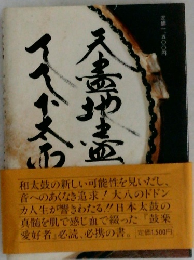 定価一五〇〇円
天盡地盡
和太鼓の新しい可能性を見いだし、
音へのあくなき追求!大八のドドン
カ人生が響きわたる!!日本太鼓の
真髄を肌で感じ血で綴った「鼓業
愛好者」必読、必携の書。
定価1,500円